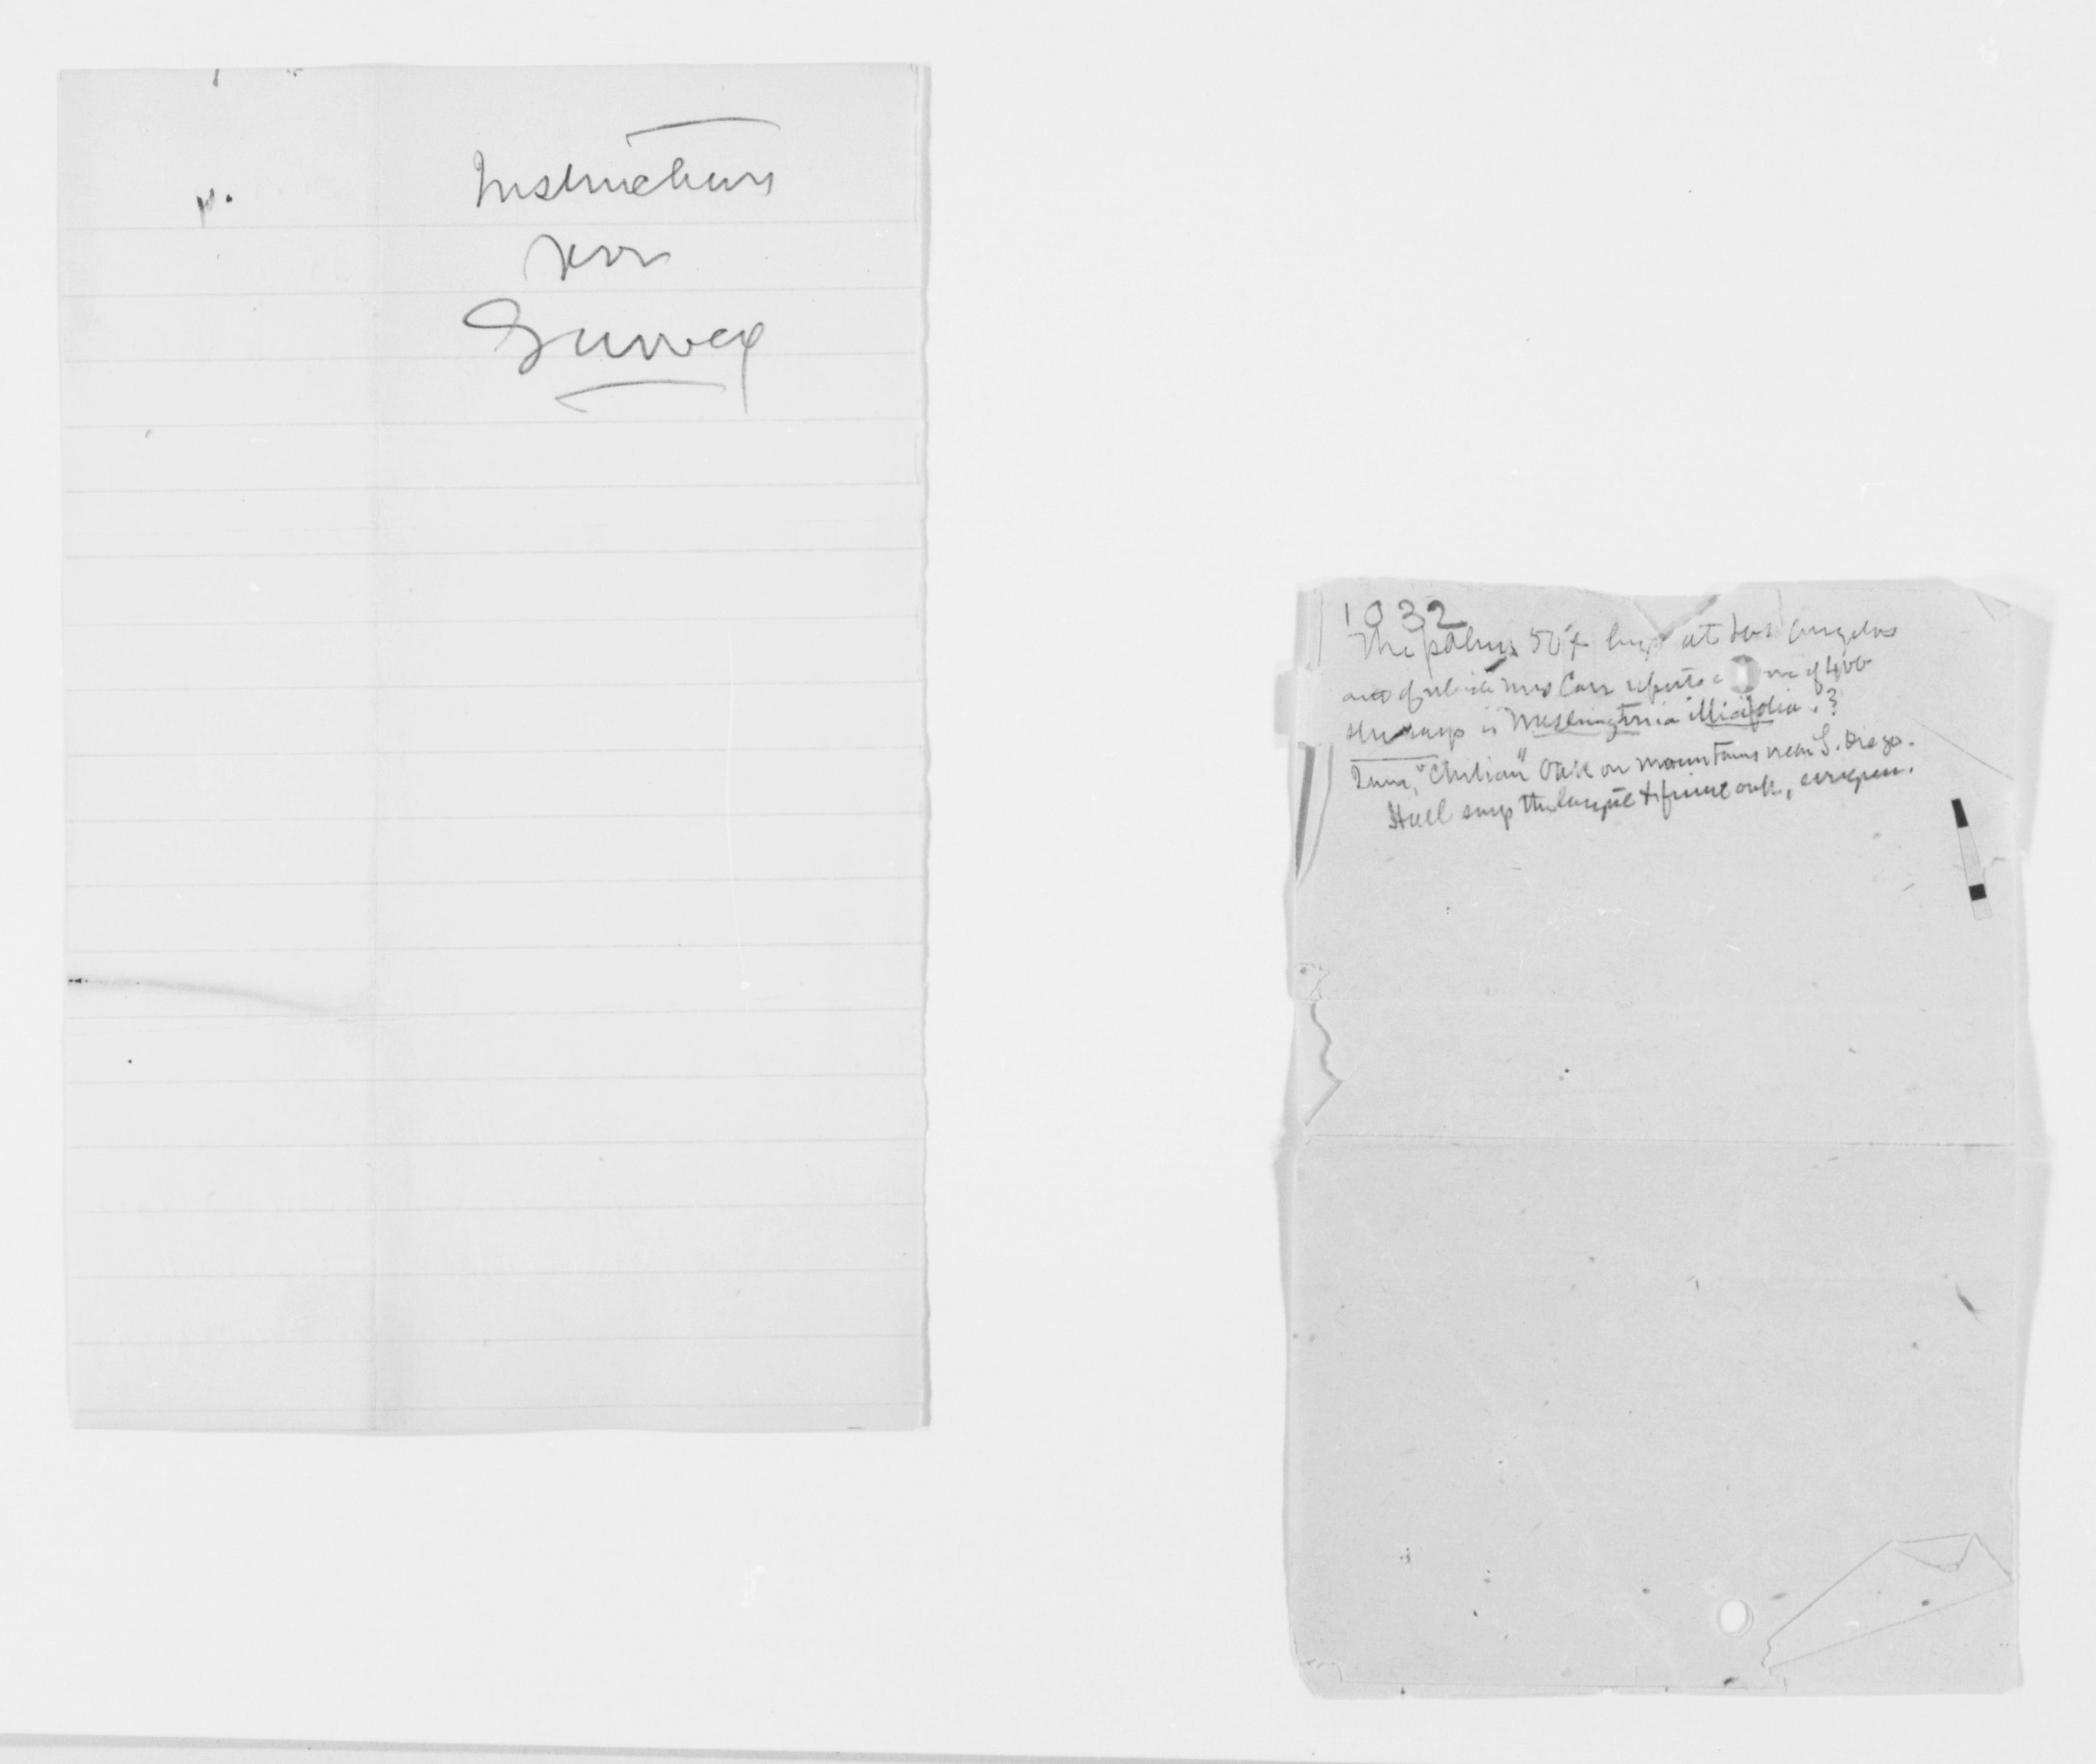 Instructions
for
Survey
1032
The palms 50 ft high at Los Angeles
and of which Mrs Carr reports one of 400
she says is Washingtonia
"Chilian" Oak on mountains near S. Diego.
Hall says the largest & finest oak, evergreen.